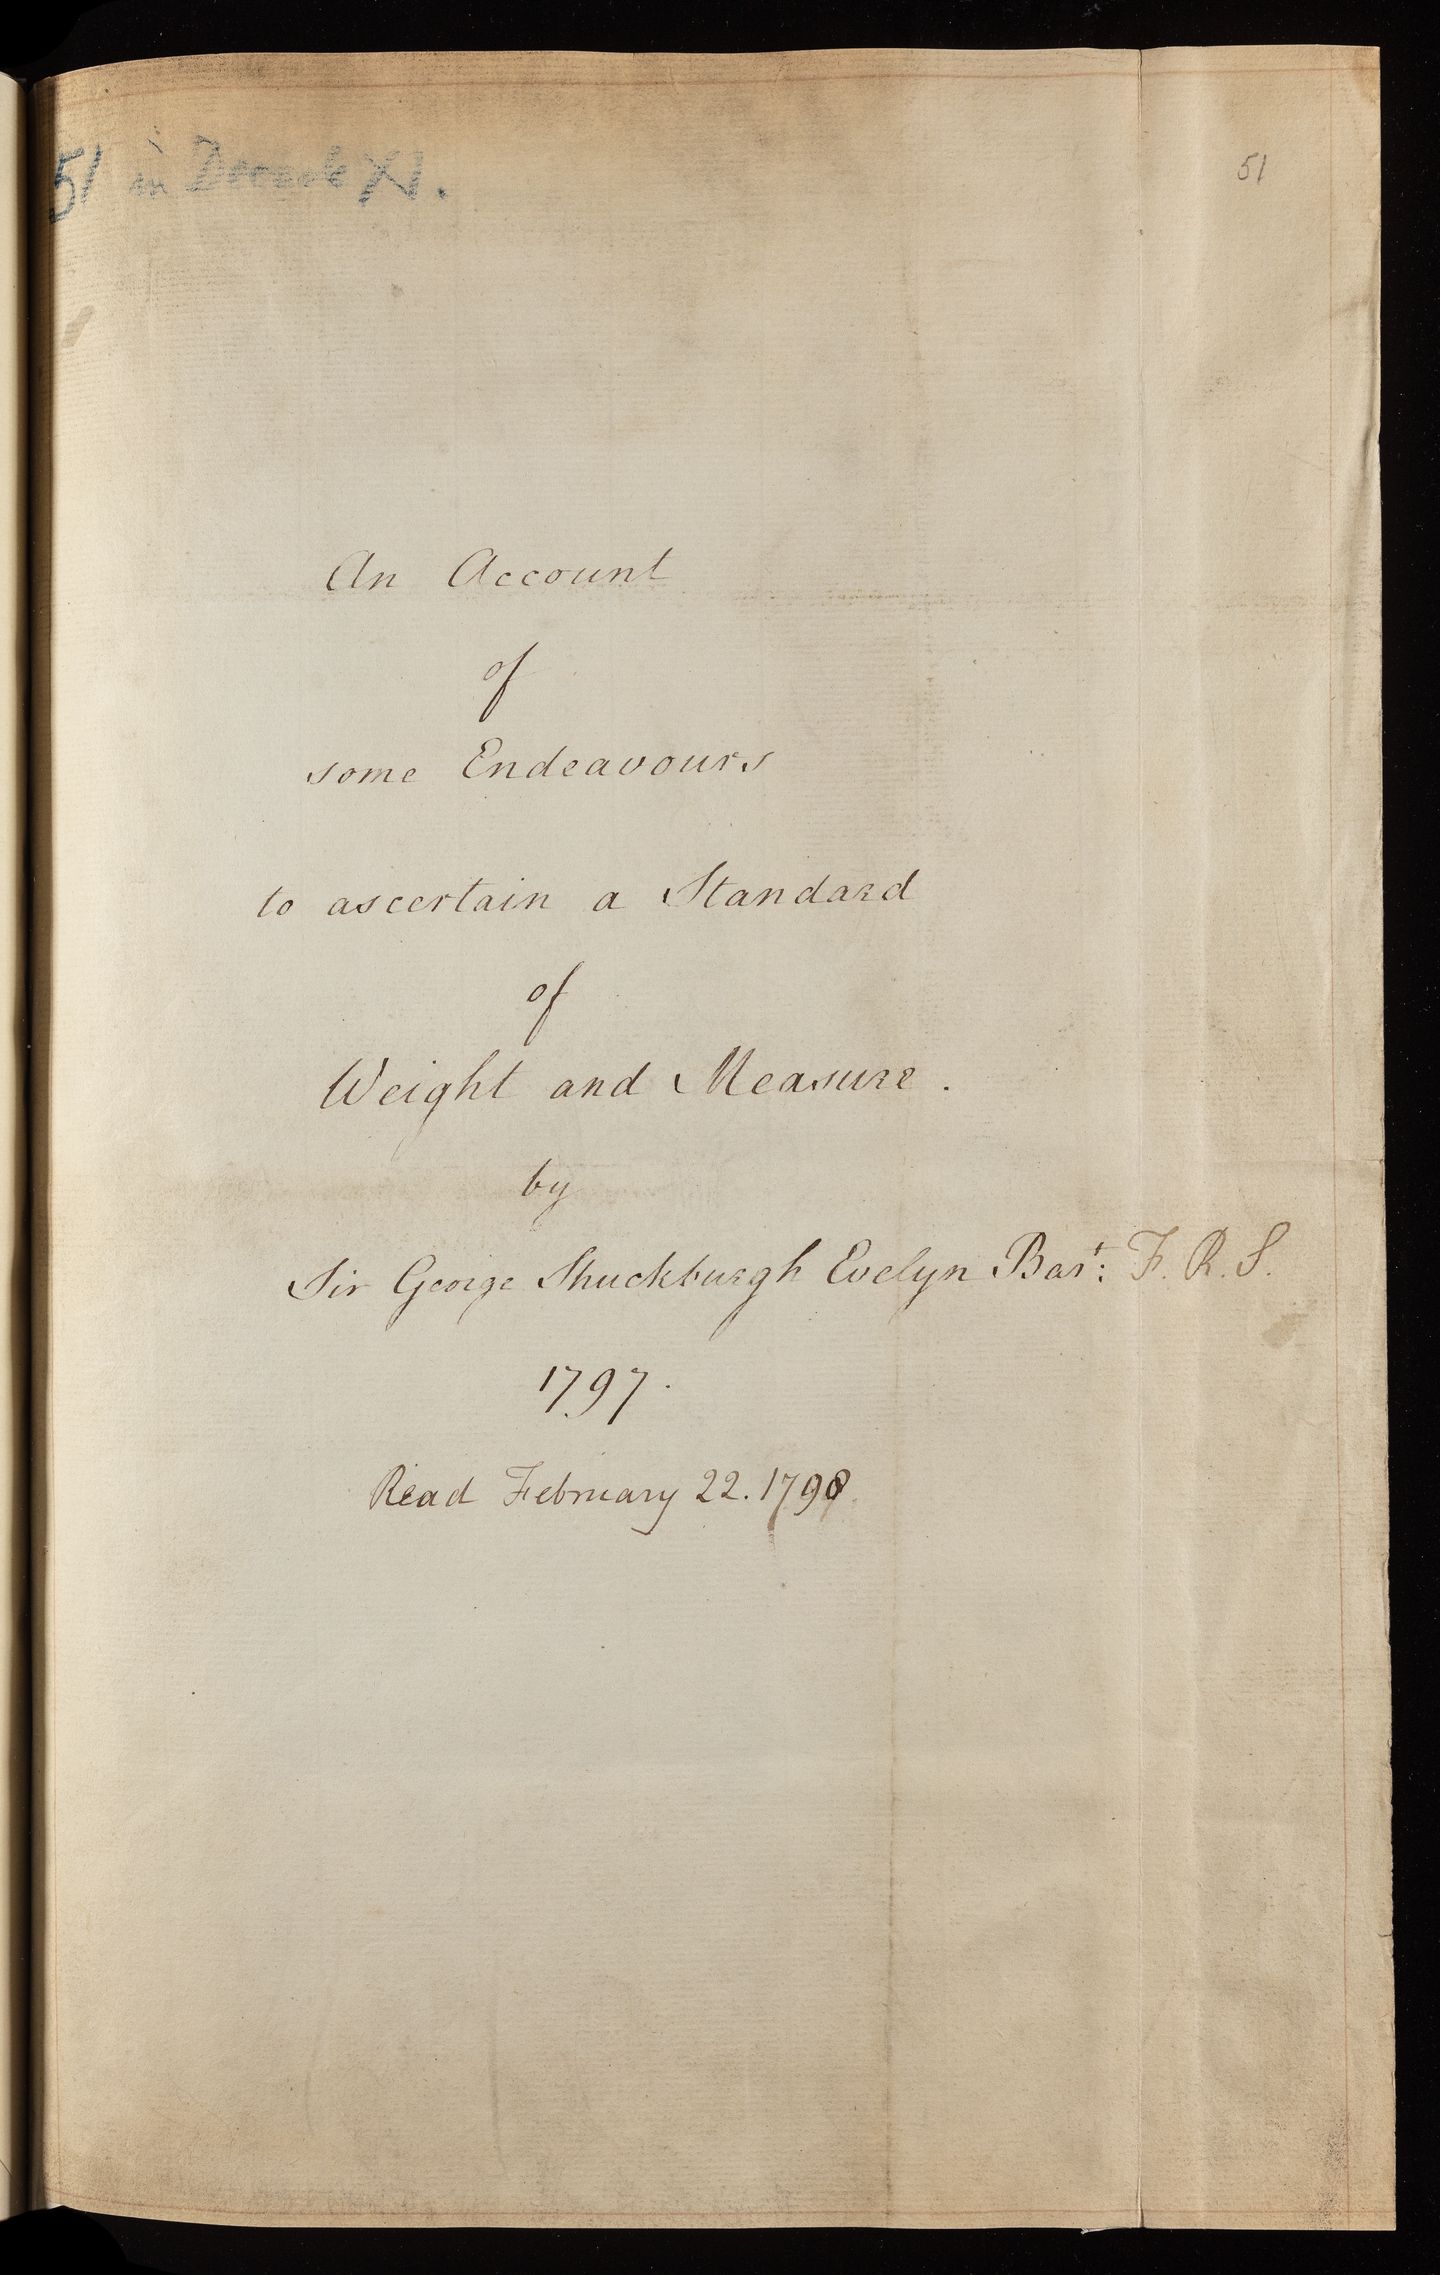 51 in Decade XI.
51
An Account
of
some Endeavours
to ascertain a Standard
of
Weight and Measure.
by
Sir George Shuckburgh Evelyn Bart: F. R. S.
1797.
Read February 22. 1798